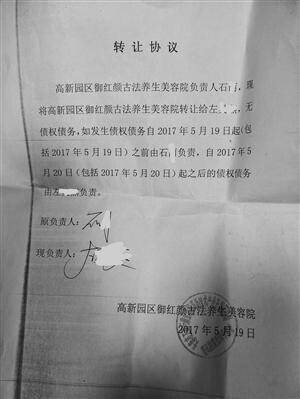 转让协议
高新园区御红颜古法养生美容院负责人石 ，现
将高新园区御红颜古法养生美容院转让给左 ，无
债权债务，如发生债权债务自2017年5月19日起（包
括2017年5月19日）之前由石 负责，自2017年5
月20日（包括2017年5月20日）起之后的债权债务
由左 负责。
原负责人：石
现负责人：左
高新园区御红颜古法养生美容院
2017年5月19日